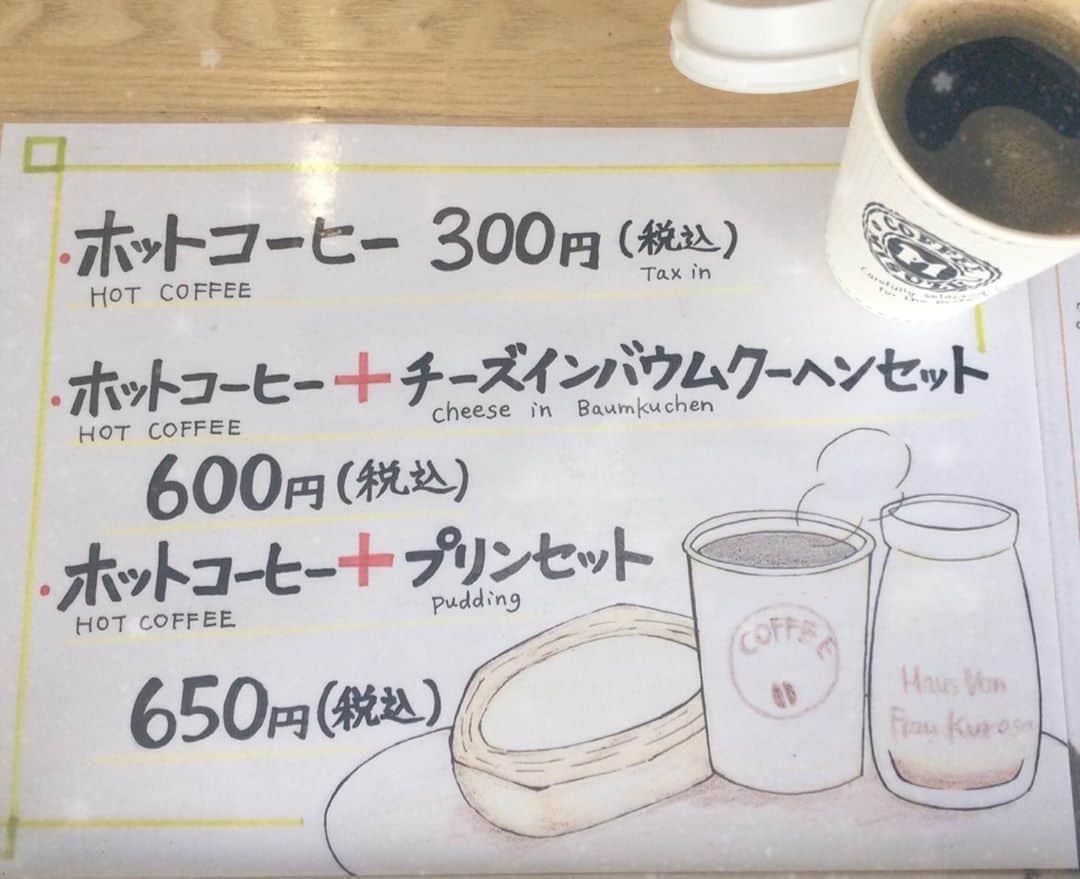 ・ホットコーヒー 300円(税込)
HOT COFFEE Tax in
・ホットコーヒー+チーズインバウムクーヘンセット
HOT COFFEE cheese in Baumkuchen
600円(税込)
・ホットコーヒー+プリンセット
HOT COFFEE pudding
650円(税込)
COFFEE
Haus Von
Frau Kurosa
COFFEE
Carefully
for the